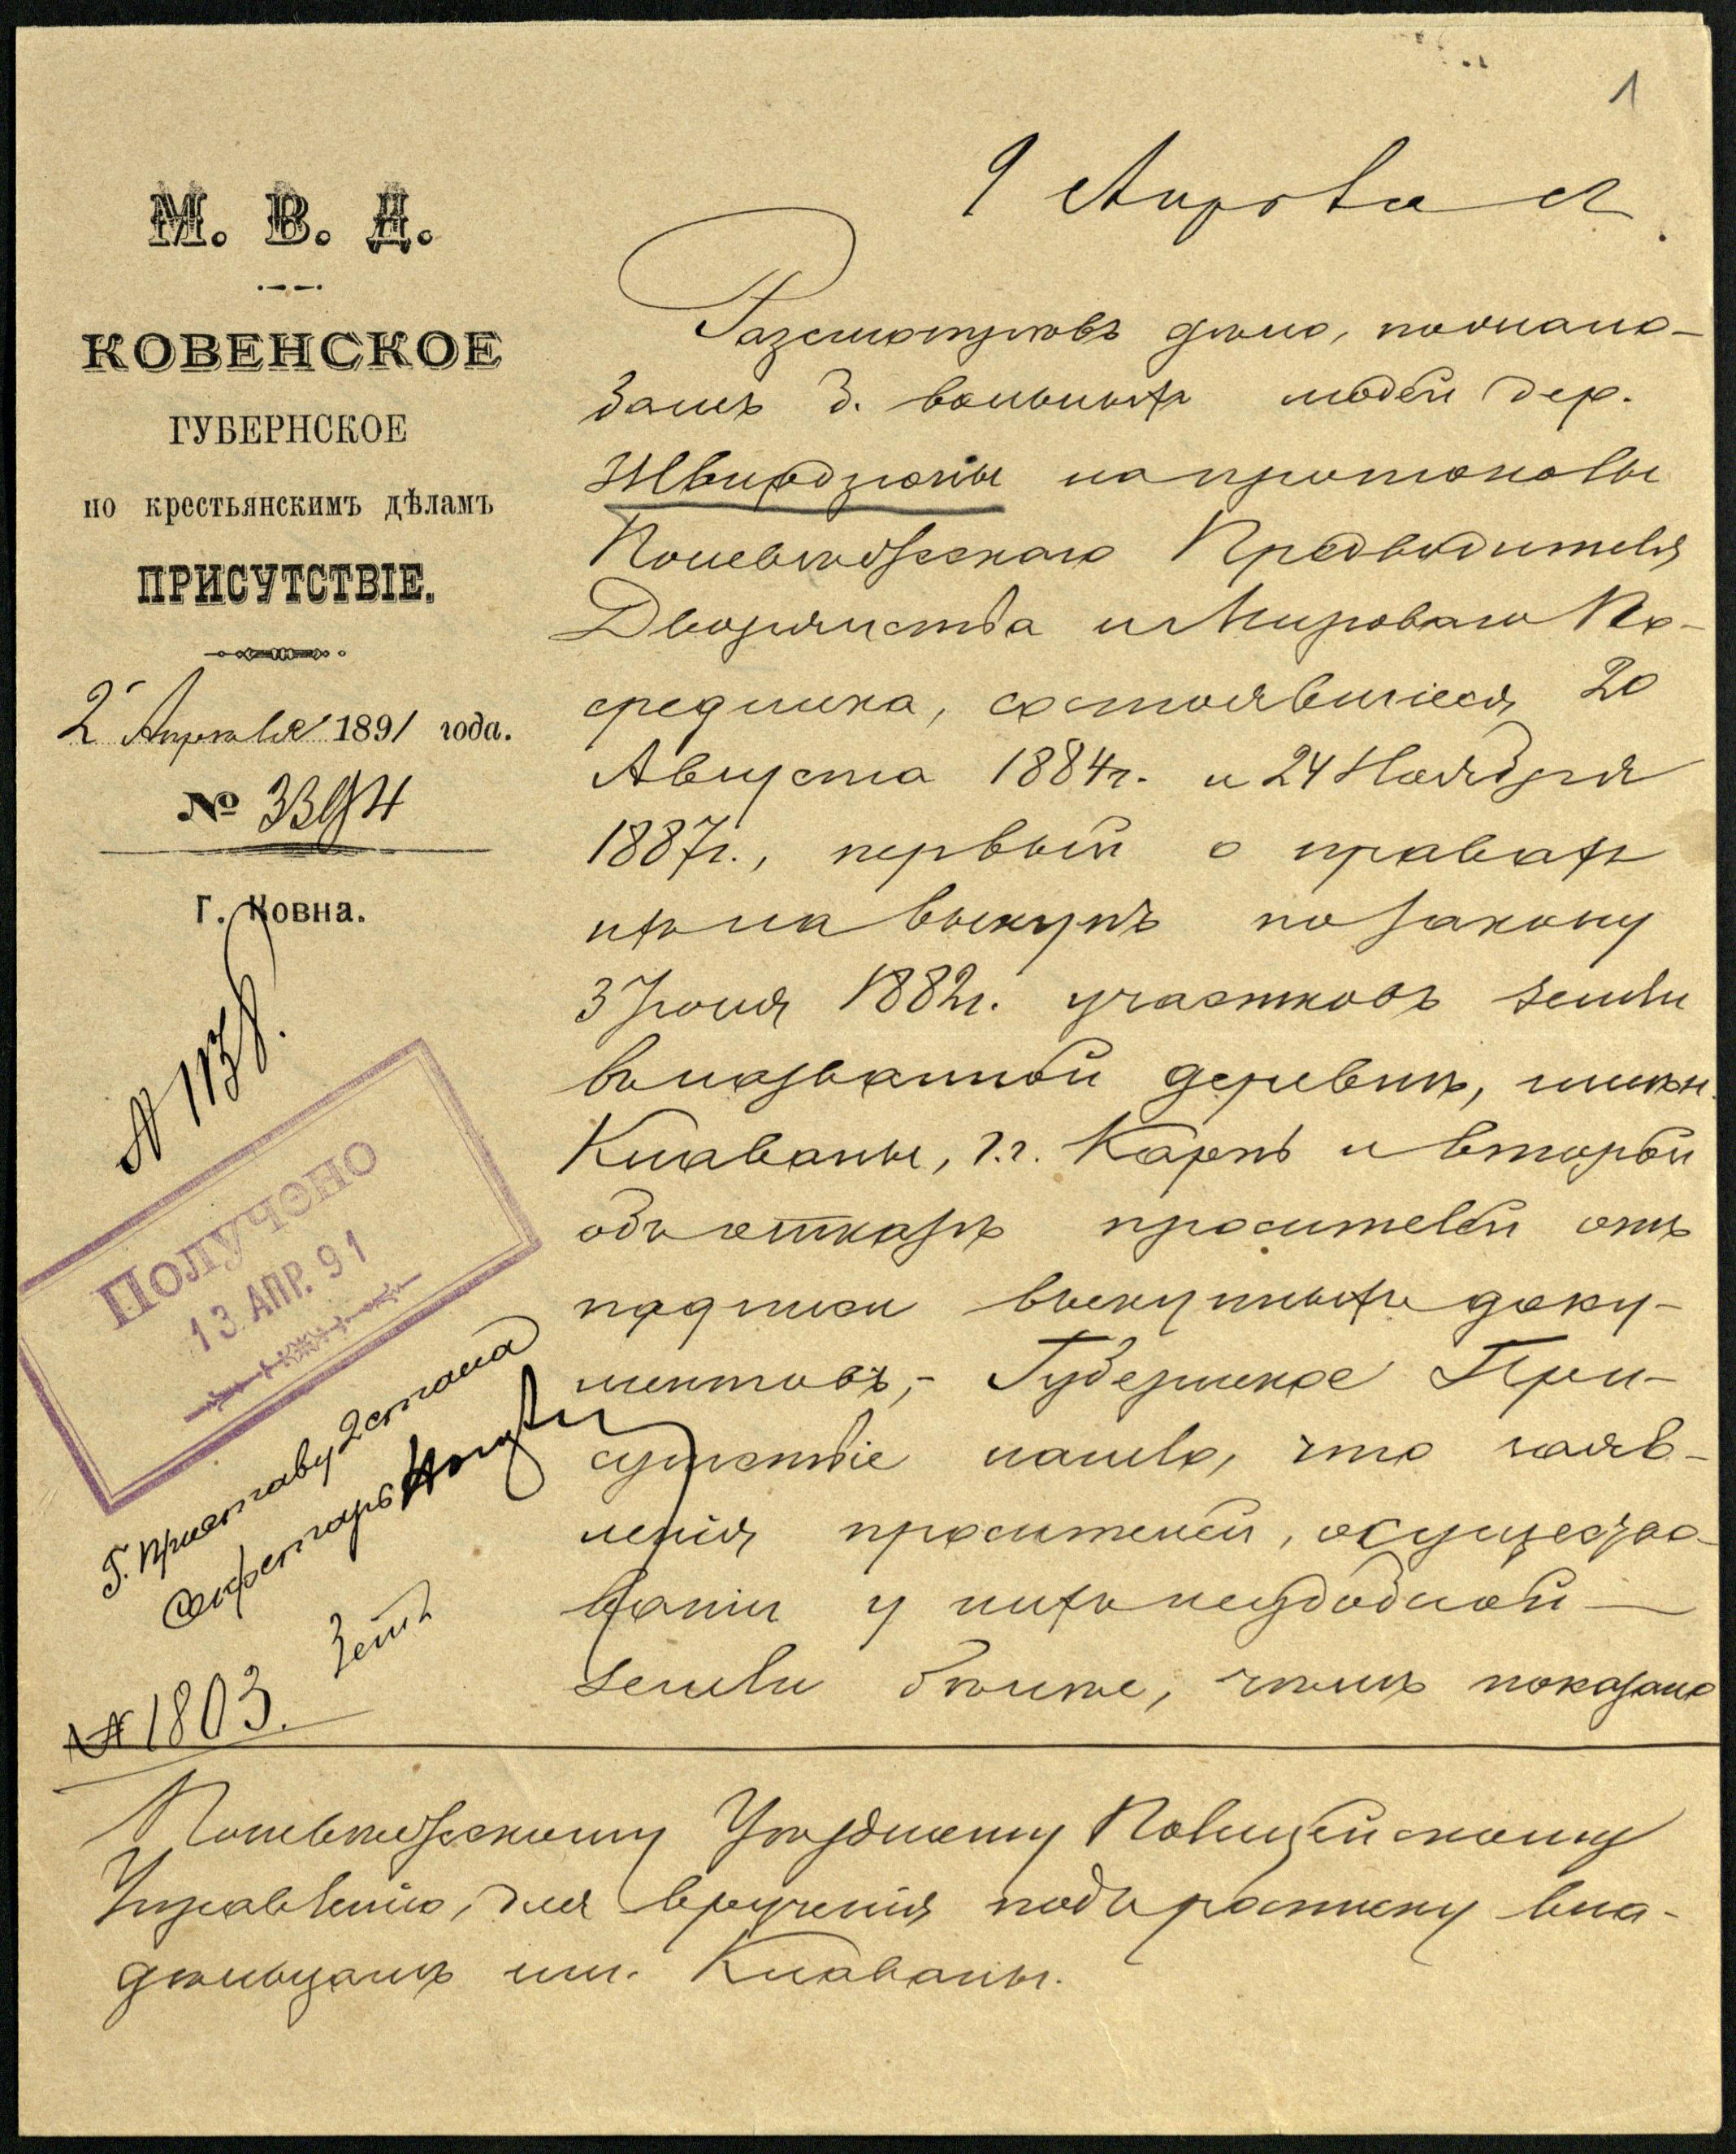 1
9 Апрѣля
М. В. Д.
КОВЕНСКОЕ
ГУБЕРНСКОЕ
по крестьянскимъ дѣламъ
ПРИСУТСТВІЕ.
2 Апрѣля 1891 года.
№ 3394
Г. Ковна.
№ 1138.
ПОЛУЧЕНО
13. АПР. 91
Г. Приставу 2 стана
Секретарь
№ 1803.
Разсмотрѣвъ дѣло, по жало-
бамъ б. вольныхъ людей дер.
на протоколы
Поневѣжскаго Предводителя
Дворянства и Мироваго По-
средника, состоявшіеся 20
Августа 1884г. и 24 Ноября
1887г., первый о правахъ
ихъ на выкупъ по закону
3 Іюня 1882г. участковъ земли
въ названной деревнѣ, имѣн.
Клаваны, г.г. Карпь и второй
объ отказѣ просителей отъ
подписи выкупныхъ доку-
ментовъ,- Губернское При-
сутствіе нашло, что заяв-
ленія просителей, о существо-
ваніи у нихъ неудобной
земли болѣе, чѣмъ показано
Поневѣжскому Уѣздному Полицейскому
Управленію, для врученія подъ росписку вла-
дѣльцамъ им. Клаваны.